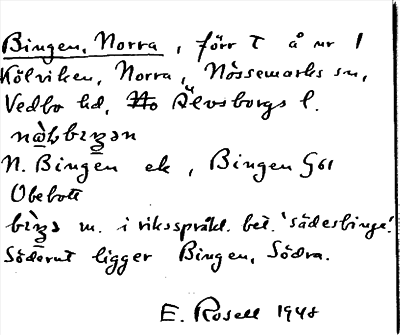 Bingen, Norra, förr T å nr 1
Kölviken, Norra, Nössemarks sn,
Vedbo hd, Älvsborgs l.
N. Bingen ek, Bingen G61
Obebott
m. i riksspråkl. bet. 'sädesbinge'.
Söderut ligger Bingen, Södra.
E. Rosell 1948